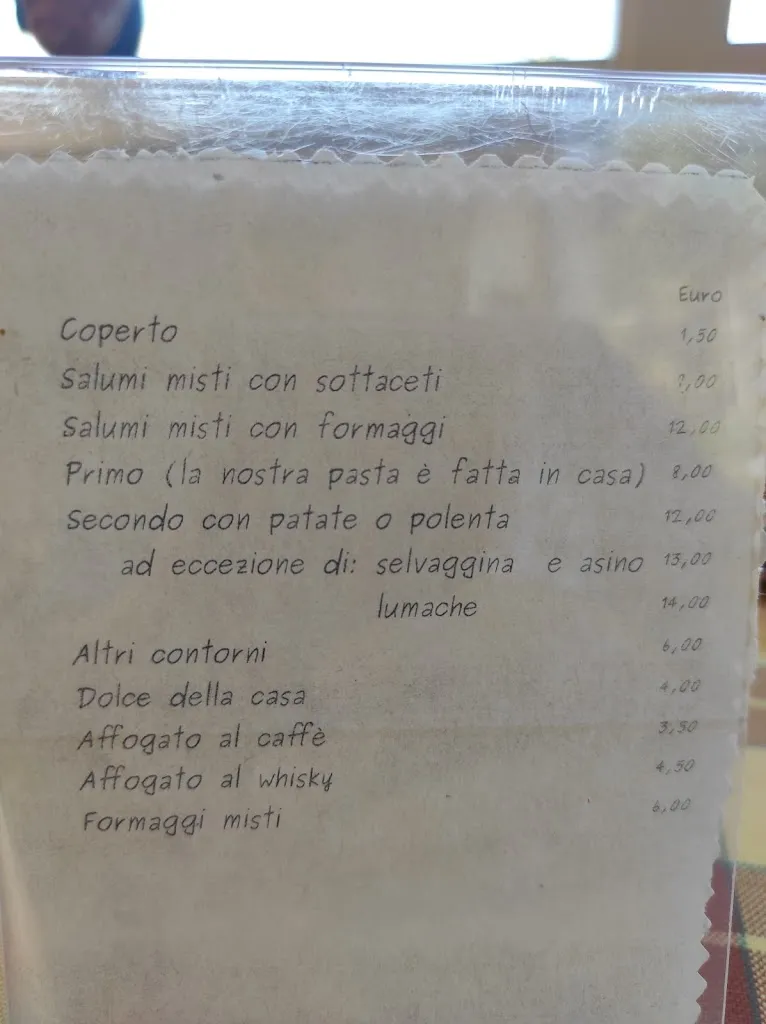 Euro
Coperto 1,50
Salumi misti con sottaceti
Salumi misti con formaggi 12,00
Primo (la nostra pasta è fatta in casa) 8,00
Secondo con patate o polenta 12,00
ad eccezione di: selvaggina e asino 13,00
lumache 14,00
Altri contorni 6,00
Dolce della casa 4,00
Affogato al caffè 3,50
Affogato al whisky 4,50
Formaggi misti 6,00